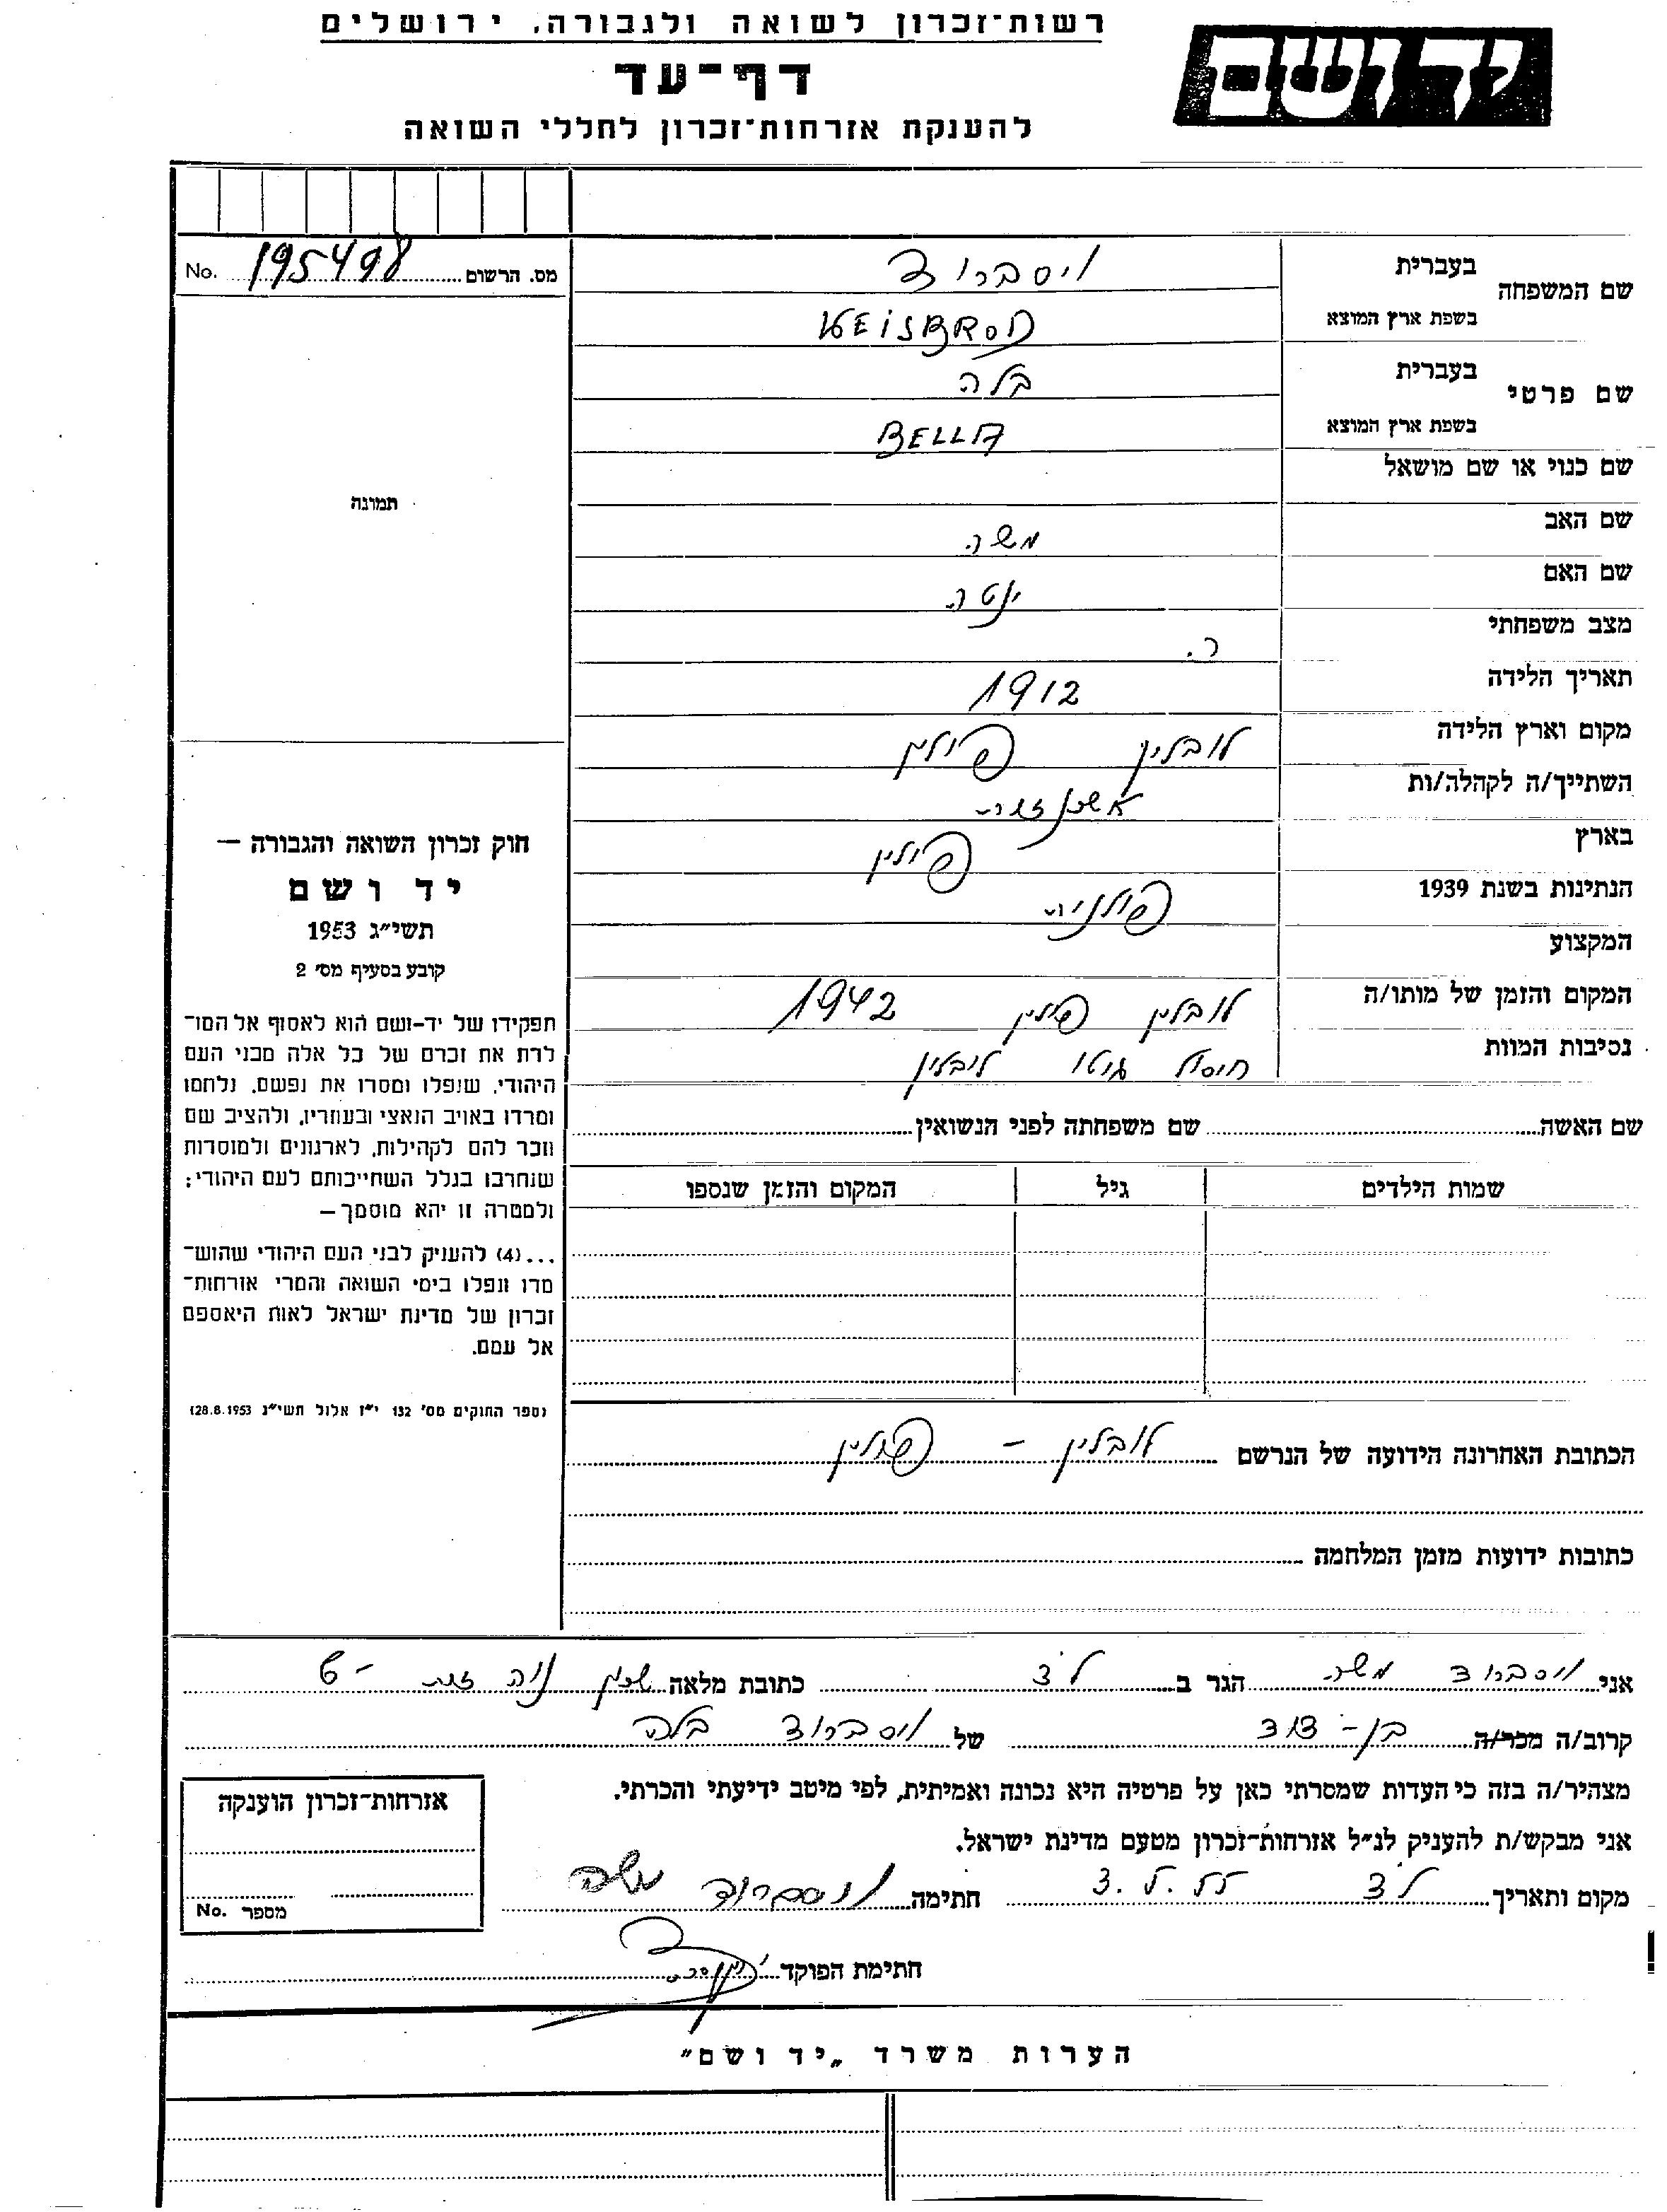 רשות־זכרון לשואה ולגבורה, ירושלים
יד ושם
דף־עד
להענקת אזרחות־זכרון לחללי השואה
מס. הרשום 195498 No.
שם המשפחה
בעברית ויסברוד
בשפת ארץ המוצא WEISBROD
שם פרטי
בעברית בלה
בשפת ארץ המוצא BELLA
שם כנוי או שם מושאל
תמונה
שם האב משה
שם האם ינטה
מצב משפחתי ר.
תאריך הלידה 1912
מקום וארץ הלידה לובלין פולין
השתייך/ה לקהלה/ות
בארץ פולין
הנתינות בשנת 1939 פולניה
המקצוע
המקום והזמן של מותו/ה לובלין פולין 1942
נסיבות המוות חיסול גיטו לובלין
שם האשה שם משפחתה לפני הנשואין
שמות הילדים גיל המקום והזמן שנספו
הכתובת האחרונה הידועה של הנרשם לובלין – פולין
כתובות ידועות מזמן המלחמה
חוק זכרון השואה והגבורה —
יד ושם
תשי״ג 1953
קובע בסעיף מס׳ 2
תפקידו של יד-ושם הוא לאסוף אל המו־
לדת את זכרם של כל אלה מבני העם
היהודי, שנפלו ומסרו את נפשם, נלחמו
ומרדו באויב הנאצי ובעוזריו, ולהציב שם
וזכר להם לקהילות, לארגונים ולמוסדות
שנחרבו בגלל השתייכותם לעם היהודי;
ולמטרה זו יהא מוסמך —
...(4) להעניק לבני העם היהודי שהוש־
מדו ונפלו בימי השואה והמרי אזרחות־
זכרון של מדינת ישראל לאות היאספם
אל עמם.
(ספר החוקים מס׳ 132 י״ז אלול תשי״ג 28.8.1953)
אני ויסברוד משה הגר ב כתובת מלאה שכון נוה
קרוב/ה מכר/ה בן-דוד של ויסברוד בלה
מצהיר/ה בזה כי העדות שמסרתי כאן על פרטיה היא נכונה ואמיתית, לפי מיטב ידיעתי והכרתי.
אני מבקש/ת להעניק לנ״ל אזרחות־זכרון מטעם מדינת ישראל.
מקום ותאריך חתימה ויסברוד משה
חתימת הפוקד
אזרחות־זכרון הוענקה
מספר No.
הערות משרד „יד ושם”